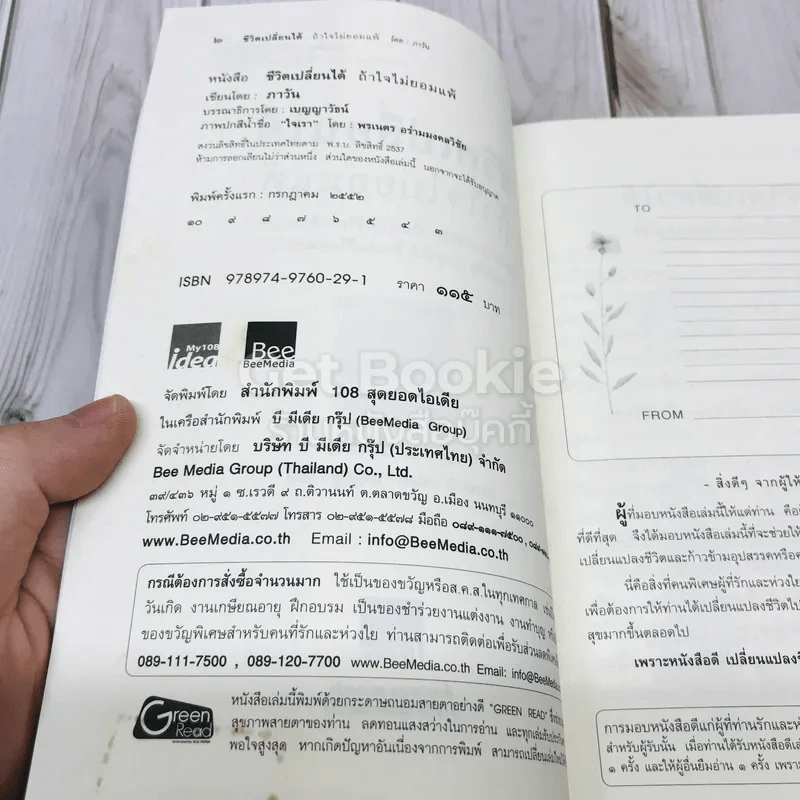 ๒ ชีวิตเปลี่ยนได้ ถ้าใจไม่ยอมแพ้ โดย : ภาวัน
หนังสือ ชีวิตเปลี่ยนได้ ถ้าใจไม่ยอมแพ้
เขียนโดย : ภาวัน
บรรณาธิการโดย : เบญญาวัธน์
ภาพปกสีน้ำชื่อ "ใจเรา" โดย : พรเนตร อร่ามมงคลวิชัย
สงวนลิขสิทธิ์ในประเทศไทยตาม พ.ร.บ. ลิขสิทธิ์ 2537
ห้ามการลอกเลียนไม่ว่าส่วนหนึ่ง ส่วนใดของหนังสือเล่มนี้ นอกจากจะได้รับอนุญาต
พิมพ์ครั้งแรก : กรกฎาคม ๒๕๕๒
๑๐ ๙ ๘ ๗ ๖ ๕ ๔ ๓
ISBN 978974-9760-29-1 ราคา ๑๑๕ บาท
My108 idea
Bee BeeMedia
Get Bookie
ร้านหนังสือบุ๊คกี้
จัดพิมพ์โดย สำนักพิมพ์ 108 สุดยอดไอเดีย
ในเครือสำนักพิมพ์ บี มีเดีย กรุ๊ป (BeeMedia Group)
จัดจำหน่ายโดย บริษัท บี มีเดีย กรุ๊ป (ประเทศไทย) จำกัด
Bee Media Group (Thailand) Co., Ltd.
๓๙/๔๓๖ หมู่ ๑ ซ.เรวดี ๙ ถ.ติวานนท์ ต.ตลาดขวัญ อ.เมือง นนทบุรี ๑๑๐๐๐
โทรศัพท์ ๐๒-๙๕๑-๕๕๗๗ โทรสาร ๐๒-๙๕๑-๕๕๗๘ มือถือ ๐๘๙-๑๑๑-๗๕๐๐,
www.BeeMedia.co.th Email : info@BeeMedia.co.th
กรณีต้องการสั่งซื้อจำนวนมาก ใช้เป็นของขวัญหรือส.ค.ส.ในทุกเทศกาล เช่น
วันเกิด งานเกษียณอายุ ฝึกอบรม เป็นของชำร่วยงานแต่งงาน งานทำบุญ
ของขวัญพิเศษสำหรับคนที่รักและห่วงใย ท่านสามารถติดต่อเพื่อรับส่วนลดพิเศษ
089-111-7500 , 089-120-7700 www.BeeMedia.co.th Email: info@BeeMedia.co
Green Read
หนังสือเล่มนี้พิมพ์ด้วยกระดาษถนอมสายตาอย่างดี "GREEN READ"
สุขภาพสายตาของท่าน ลดทอนแสงสว่างในการอ่าน และทุกเล่มรับประกัน
พอใจสูงสุด หากเกิดปัญหาอันเนื่องจากการพิมพ์ สามารถเปลี่ยนเล่มใหม่ได้
TO
FROM
- สิ่งดีๆ จากผู้ให้
ผู้ที่มอบหนังสือเล่มนี้ให้แด่ท่าน
ที่ดีที่สุด จึงได้มอบหนังสือเล่มนี้ที่จะช่วยให้
เปลี่ยนแปลงชีวิตและก้าวข้ามอุปสรรคหรือ
นี่คือสิ่งที่คนพิเศษผู้ที่รักและห่วงใย
เพื่อต้องการให้ท่านได้เปลี่ยนแปลงชีวิตไป
สุขมากขึ้นตลอดไป
เพราะหนังสือดี เปลี่ยนแปลง
การมอบหนังสือดีแก่ผู้ที่ท่านรักและ
สำหรับผู้รับนั้น เมื่อท่านได้รับหนังสือดี
๑ ครั้ง และให้ผู้อื่นยืมอ่าน ๑ ครั้ง เพราะ